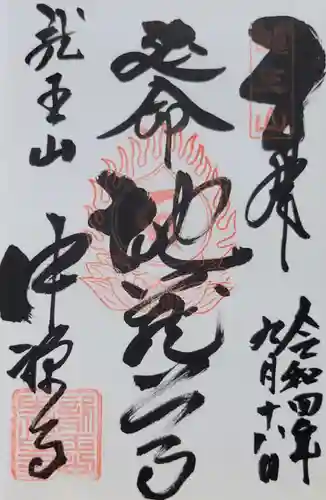 奉拝
令和四年
九月十八日
延命
地蔵尊
龍王山
中禅寺